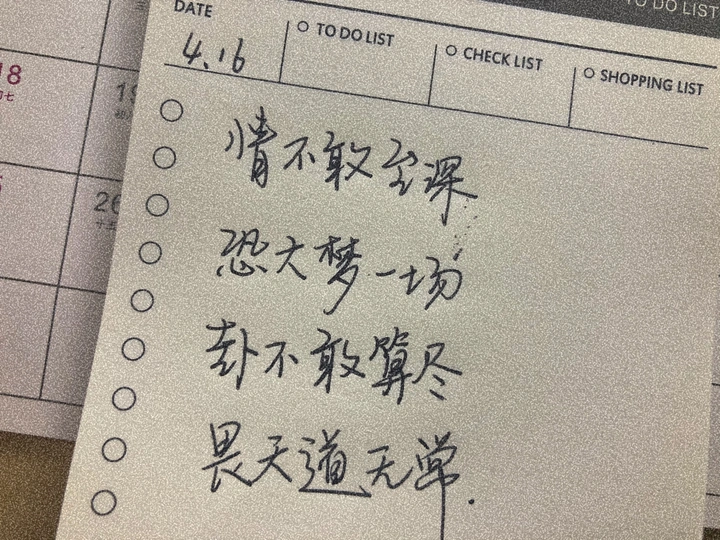 TO DO LIST
DATE
4.16
TO DO LIST
CHECK LIST
SHOPPING LIST
18
19
26
情不敢至深
恐大梦一场
卦不敢算尽
畏天道无常.